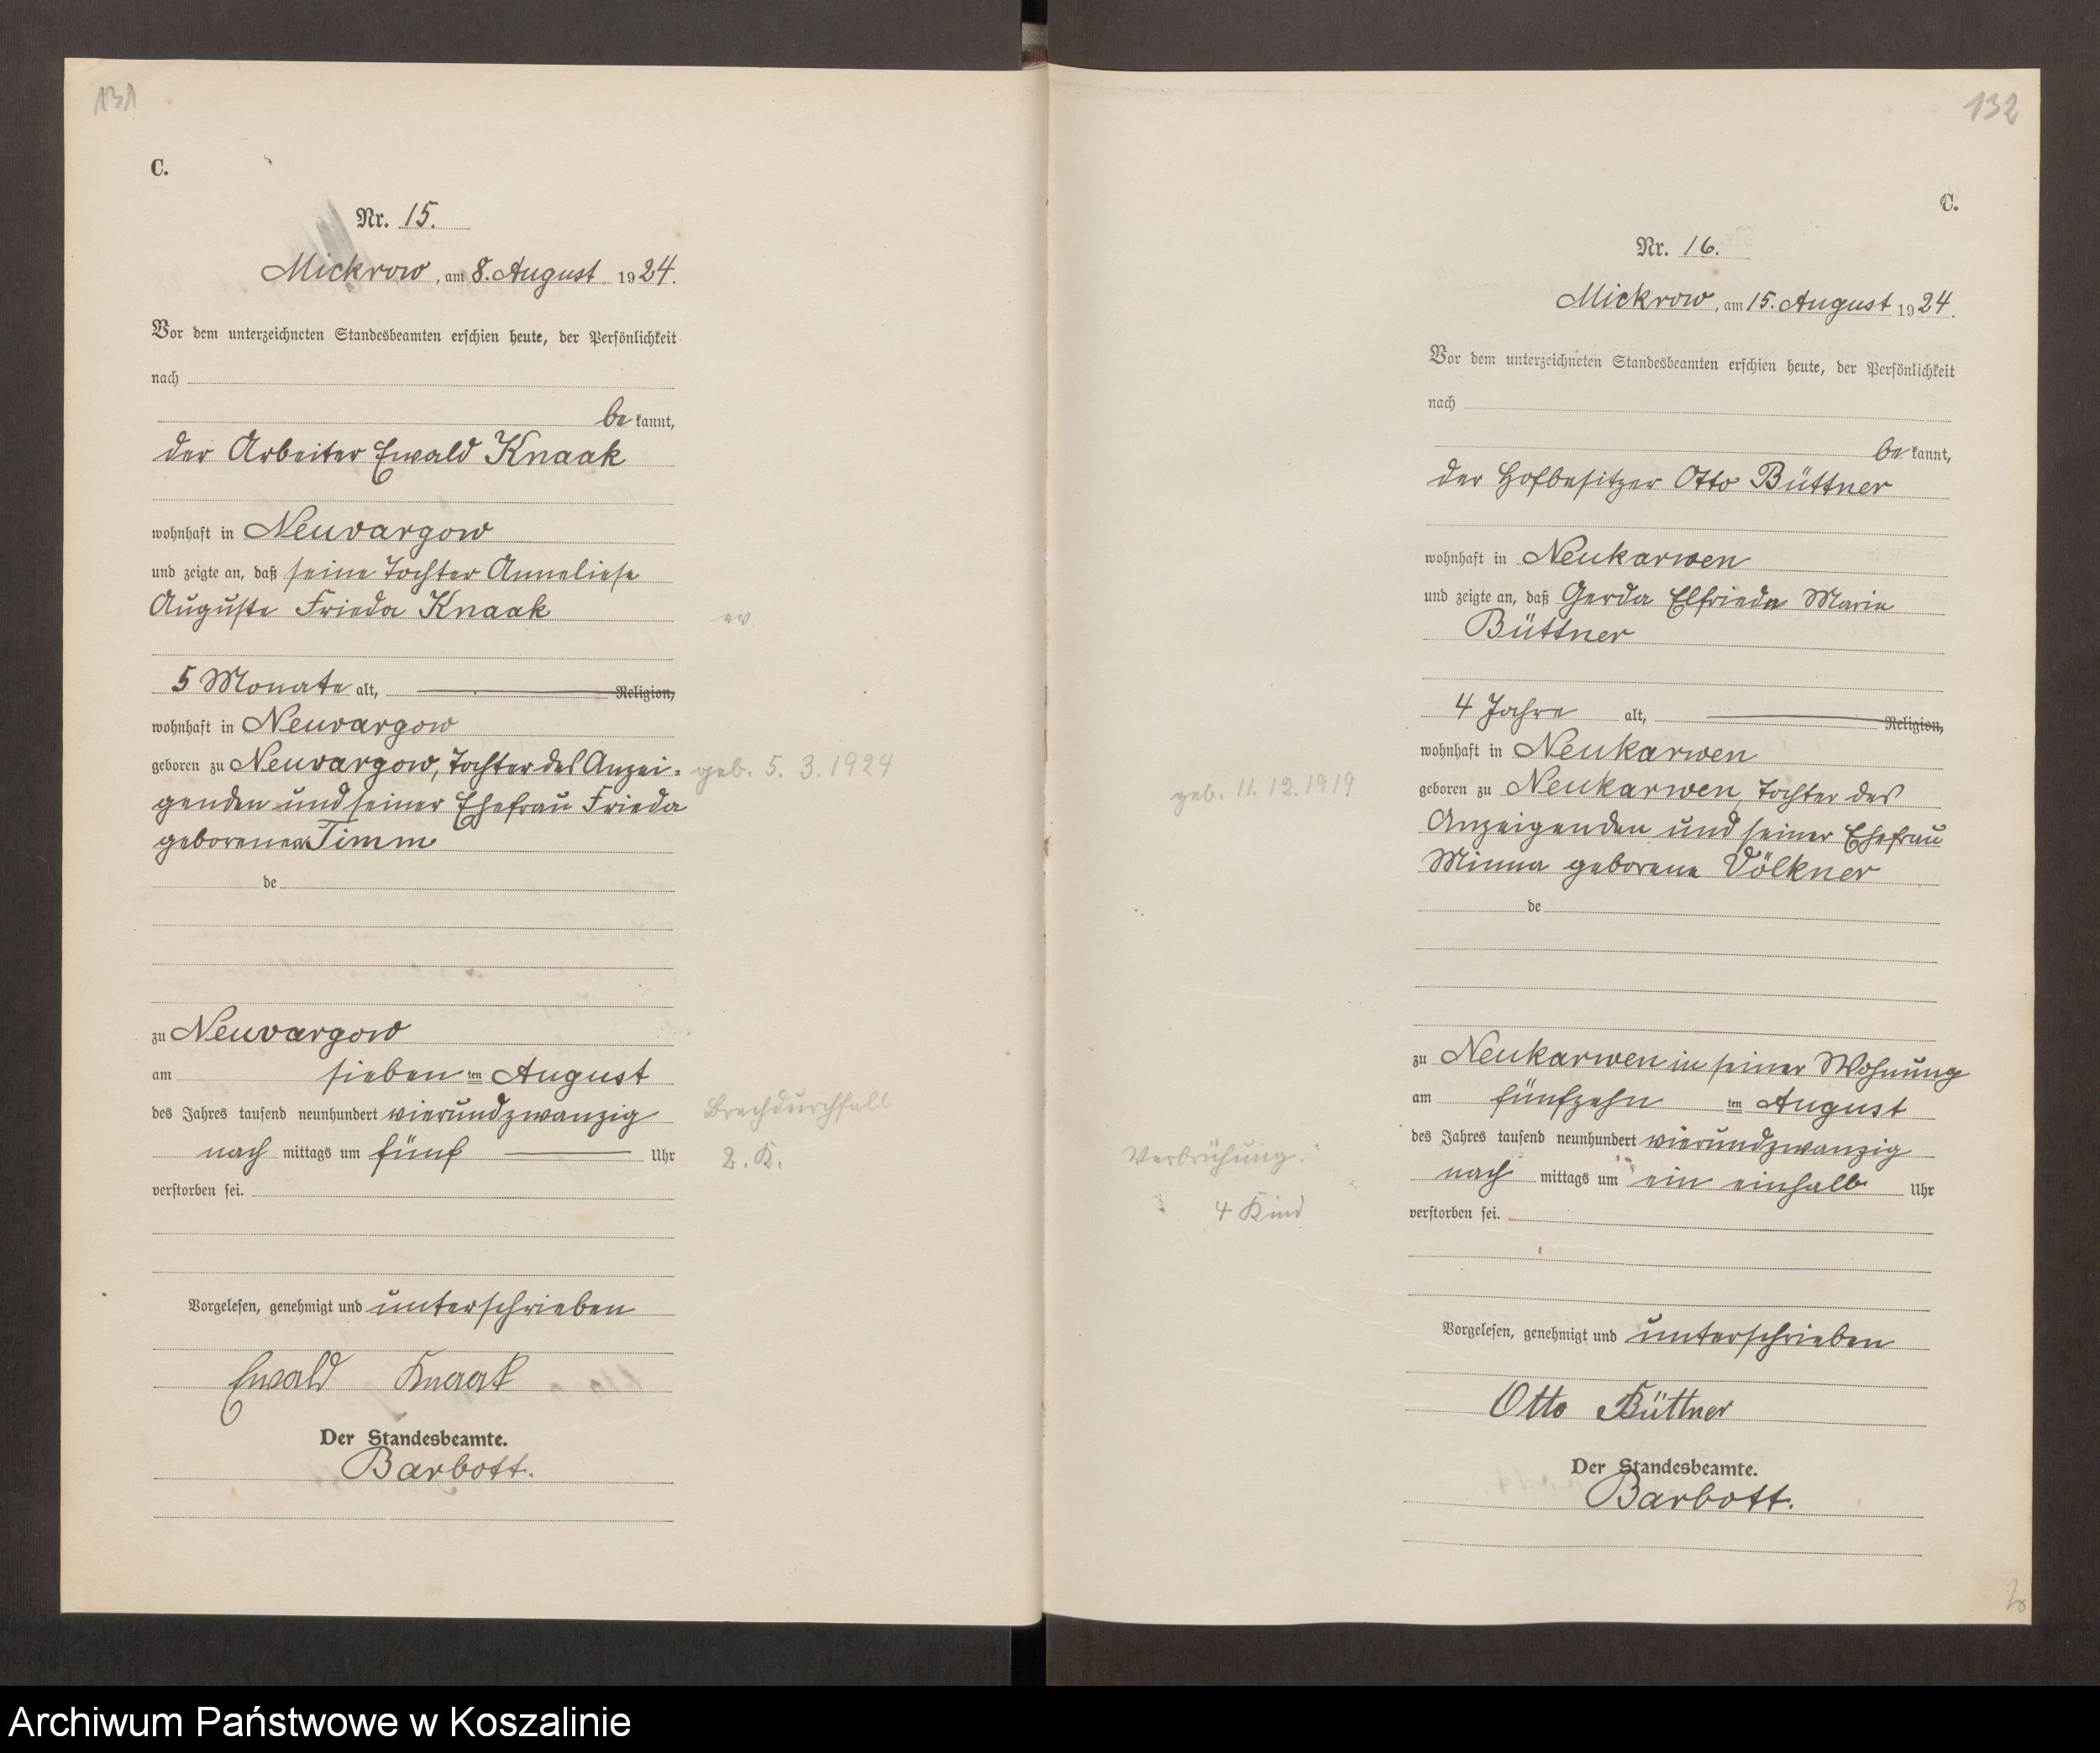 131
C.
Nr. 15.
Mickrow, am 8. August 1924.
Vor dem unterzeichneten Standesbeamten erschien heute, der Persönlichkeit
nach
be kannt,
der Arbeiter Ewald Knaak
wohnhaft in Neuvargow
und zeigte an, daß seine Tochter Anneliese
Auguste Frieda Knaak
ev.
5 Monate alt, Religion,
wohnhaft in Neuvargow
geboren zu Neuvargow, Tochter des Anzei-
geb. 5. 3. 1924
genden und seiner Ehefrau Frieda
geborenen Timm
de
zu Neuvargow
am sieben ten August
des Jahres tausend neunhundert vierundzwanzig
Brechdurchfall
nach mittags um fünf Uhr
2. K.
verstorben sei.
Vorgelesen, genehmigt und unterschrieben
Ewald Knaak
Der Standesbeamte.
Barbott.
132
C.
Nr. 16.
Mickrow, am 15. August 1924.
Vor dem unterzeichneten Standesbeamten erschien heute, der Persönlichkeit
nach
be kannt,
der Hofbesitzer Otto Büttner
wohnhaft in Neukarwen
und zeigte an, daß Gerda Elfrieda Marie
Büttner
4 Jahre alt, Religion,
wohnhaft in Neukarwen
geb. 11.12.1919
geboren zu Neukarwen, Tochter des
Anzeigenden und seiner Ehefrau
Minna geborene Völkner
de
zu Neukarwen in seiner Wohnung
am fünfzehn ten August
des Jahres tausend neunhundert vierundzwanzig
Verbrühung.
nach mittags um ein einhalb Uhr
4 Kind
verstorben sei.
Vorgelesen, genehmigt und unterschrieben
Otto Büttner
Der Standesbeamte.
Barbott.
Archiwum Państwowe w Koszalinie